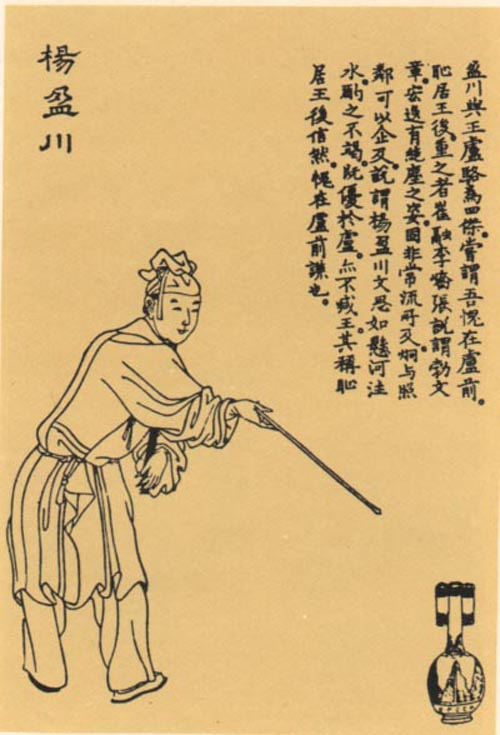 盈川與王盧駱為四傑。嘗謂吾愧在盧前。
恥居王後。重之者崔融李嶠張說謂勃文
章宏逸有絕塵之姿。固非常流所及。炯与照
鄰可以企及。說謂楊盈川文思如懸河注
水。酌之不竭。既優於盧。亦不减王。其稱恥
居王後信然。愧在盧前謙也。
楊盈川